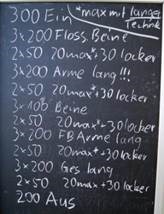 300 Ein *max mit langer
Technik
3x200 Floss. Beine
2x50 20max*+30locker
3x200 Arme lang!!!
2x50 20max*+30 locker
3x100 Beine
2x50 20max*+30locker
3x200 FB Arme lang
2x50 20max*+30locker
3x200 Ges lang
2x50 20max*+30 locker
200 Aus